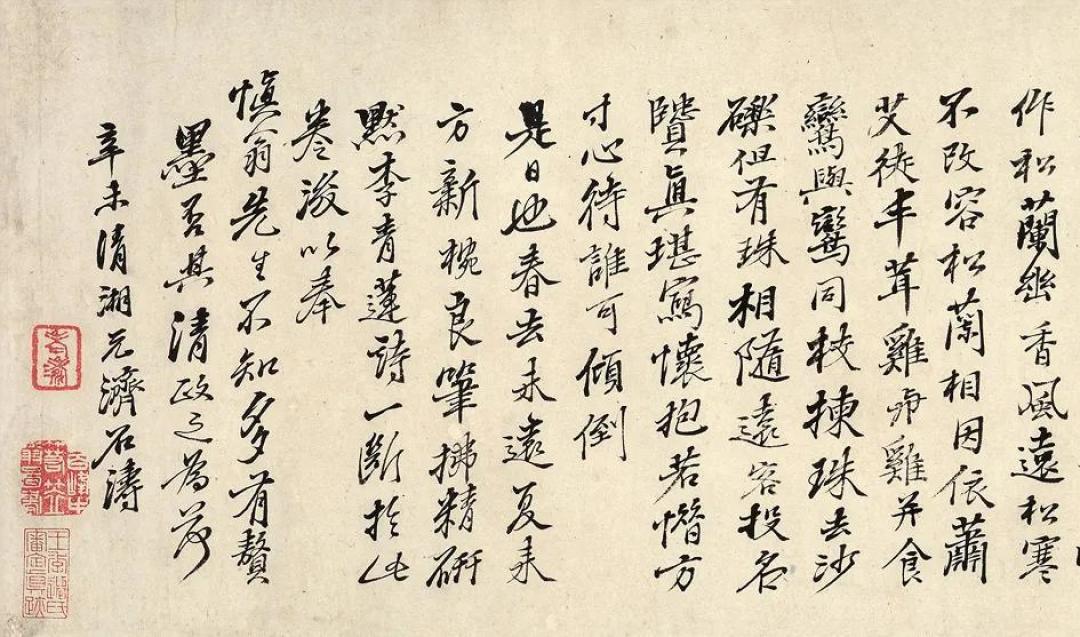 作松蘭幽香風遠松寒
不改容松蘭相因依蕭
艾徒丰茸雞與雞并食
鸞與鸞同枝揀珠去沙
礫但有珠相隨遠客投名
賢真堪寫懷抱若惜方
寸心待誰可傾倒
是日也春去未遠夏來
方新椀良筆拂精研
默李青蓮詩一斷於此
卷後以奉
慎翁先生不知多有贅
墨否其清政之為荷
辛未清湘元濟石濤
王季遷氏
審定真跡